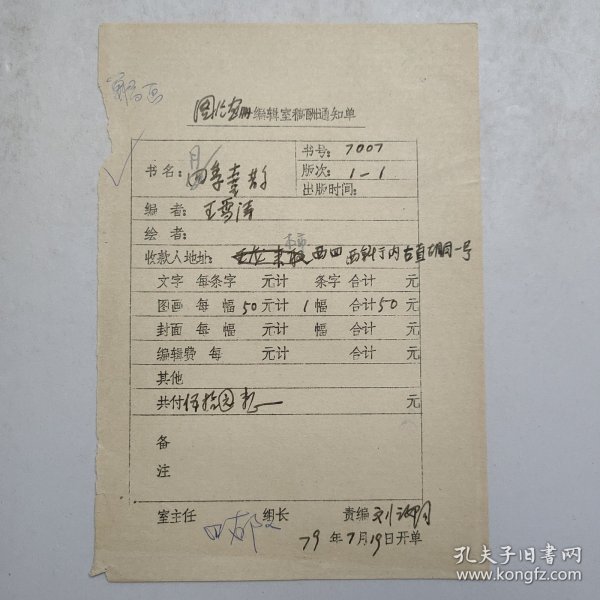 编辑室稿酬通知单
书名：四季
书号：7007
版次：1-1
出版时间：
编者：王雪涛
绘者：
收款人地址：西四 内 一号
文字 每条字 元计 条字 合计 元
图画 每 幅 50元计 1幅 合计50元
封面 每 幅 元计 幅 合计 元
编辑费 每 元计 合计 元
其他
共付伍拾元 元
备
注
室主任 组长 责编 刘
79年7月19日开单
孔夫子旧书网
www.kongfz.com